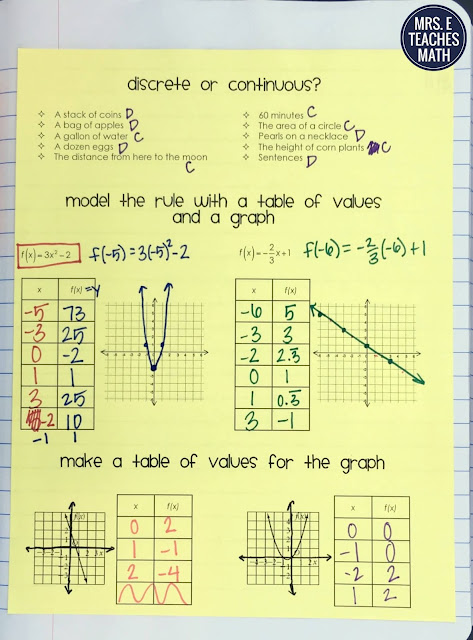 MRS. E
TEACHES
MATH
discrete or continuous?
❖ A stack of coins D
❖ A bag of apples D
❖ A gallon of water C
❖ A dozen eggs D
❖ The distance from here to the moon
C
❖ 60 minutes C
❖ The area of a circle C
❖ Pearls on a necklace D
❖ The height of corn plants C
❖ Sentences D
model the rule with a table of values
and a graph
f(x)=3x²−2 f(-5)=3(-5)²-2
x f(x) =y
-5 73
-3 25
0 -2
1 1
3 25
-2 10
-1 1
f(x)=−2/3x+1 f(-6)=-2/3(-6)+1
x f(x)
-6 5
-3 3
-2 2.3̅
0 1
1 0.3̅
3 -1
make a table of values for the graph
x f(x)
0 2
1 -1
2 -4
x f(x)
0 0
-1 0
-2 2
1 2